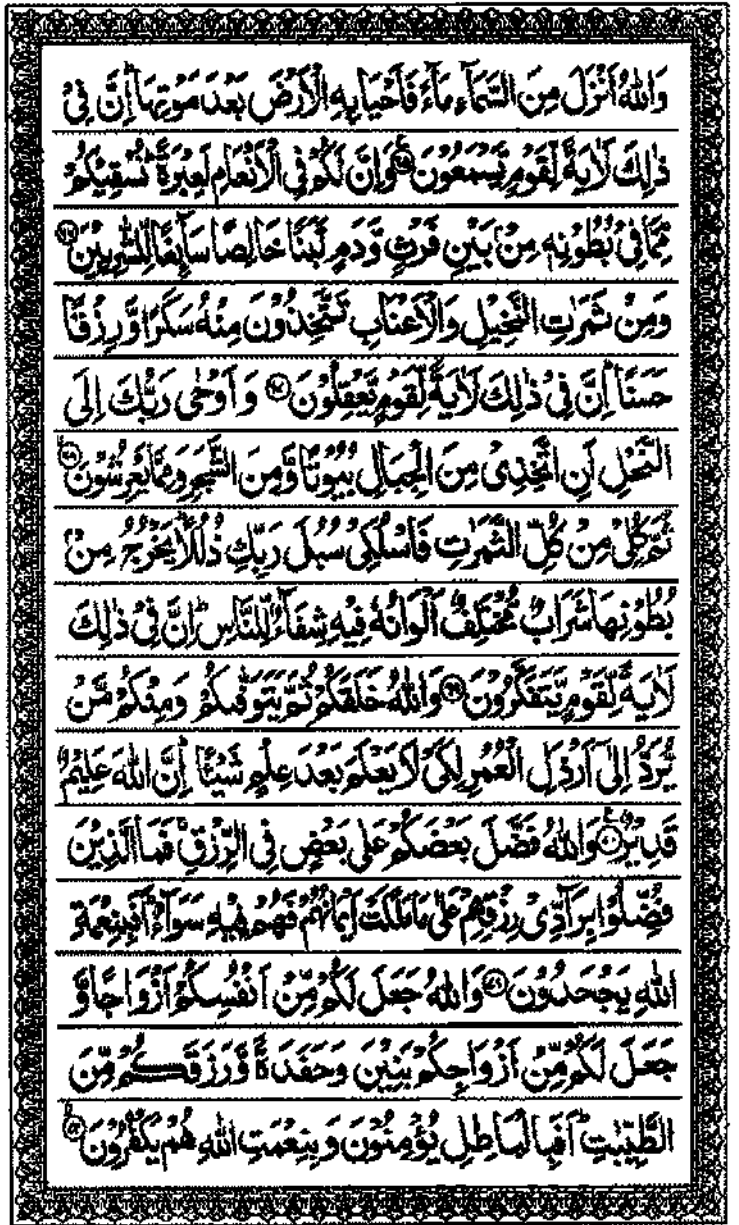 وَاللّٰهُ اَنْزَلَ مِنَ السَّمَآءِ مَآءً فَاَحْيَا بِهِ الْاَرْضَ بَعْدَ مَوْتِهَا ؕ اِنَّ فِیْ
ذٰلِكَ لَاٰیَةً لِّقَوْمٍ یَّسْمَعُوْنَ ﴿۶۵﴾ وَاِنَّ لَكُمْ فِی الْاَنْعَامِ لَعِبْرَةً ؕ نُسْقِیْكُمْ
مِّمَّا فِیْ بُطُوْنِهٖ مِنْۢ بَیْنِ فَرْثٍ وَّدَمٍ لَّبَنًا خَالِصًا سَآىِٕغًا لِّلشّٰرِبِیْنَ ﴿۶۶﴾
وَمِنْ ثَمَرٰتِ النَّخِیْلِ وَالْاَعْنَابِ تَتَّخِذُوْنَ مِنْهُ سَكَرًا وَّرِزْقًا
حَسَنًا ؕ اِنَّ فِیْ ذٰلِكَ لَاٰیَةً لِّقَوْمٍ یَّعْقِلُوْنَ ﴿۶۷﴾ وَاَوْحٰی رَبُّكَ اِلَی
النَّحْلِ اَنِ اتَّخِذِیْ مِنَ الْجِبَالِ بُیُوْتًا وَّمِنَ الشَّجَرِ وَمِمَّا یَعْرِشُوْنَ ﴿۶۸﴾
ثُمَّ كُلِیْ مِنْ كُلِّ الثَّمَرٰتِ فَاسْلُكِیْ سُبُلَ رَبِّكِ ذُلُلًا ؕ یَخْرُجُ مِنْۢ
بُطُوْنِهَا شَرَابٌ مُّخْتَلِفٌ اَلْوَانُهٗ فِیْهِ شِفَآءٌ لِّلنَّاسِ ؕ اِنَّ فِیْ ذٰلِكَ
لَاٰیَةً لِّقَوْمٍ یَّتَفَكَّرُوْنَ ﴿۶۹﴾ وَاللّٰهُ خَلَقَكُمْ ثُمَّ یَتَوَفّٰىكُمْ وَمِنْكُمْ مَّنْ
یُّرَدُّ اِلٰۤی اَرْذَلِ الْعُمُرِ لِكَیْ لَا یَعْلَمَ بَعْدَ عِلْمٍ شَیْـًٔا ؕ اِنَّ اللّٰهَ عَلِیْمٌ
قَدِیْرٌ ﴿۷۰﴾ وَاللّٰهُ فَضَّلَ بَعْضَكُمْ عَلٰی بَعْضٍ فِی الرِّزْقِ ۚ فَمَا الَّذِیْنَ
فُضِّلُوْا بِرَآدِّیْ رِزْقِهِمْ عَلٰی مَا مَلَكَتْ اَیْمَانُهُمْ فَهُمْ فِیْهِ سَوَآءٌ ؕ اَفَبِنِعْمَةِ
اللّٰهِ یَجْحَدُوْنَ ﴿۷۱﴾ وَاللّٰهُ جَعَلَ لَكُمْ مِّنْ اَنْفُسِكُمْ اَزْوَاجًا وَّ
جَعَلَ لَكُمْ مِّنْ اَزْوَاجِكُمْ بَنِیْنَ وَحَفَدَةً وَّرَزَقَكُمْ مِّنَ
الطَّیِّبٰتِ ؕ اَفَبِالْبَاطِلِ یُؤْمِنُوْنَ وَبِنِعْمَتِ اللّٰهِ هُمْ یَكْفُرُوْنَ ﴿۷۲﴾